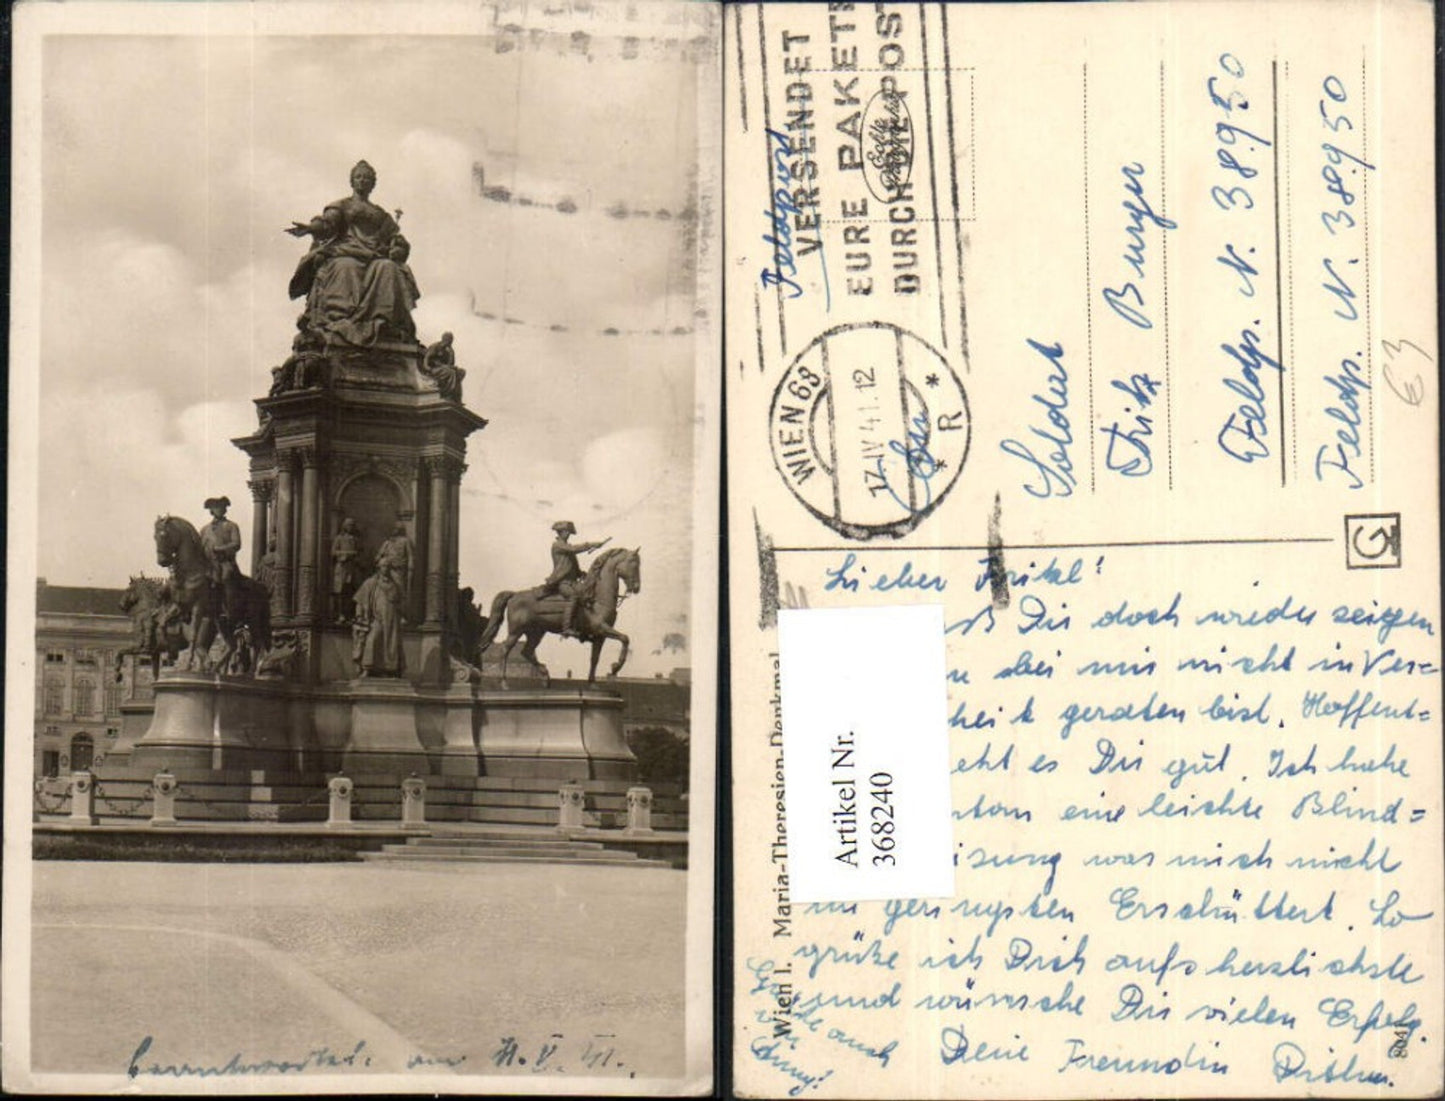 Feldpost
VERSENDET
EURE PAKETE
DURCH DIE POST
Echte
WIEN 63
17.IV 41.12
* R *
Soldat
Fritz Burger
Feldp. N. 38950
Feldp. N. 38950
€3
G
Lieber Fritzl!
ß Dir doch wieder zeigen
bei mir nicht in Ver=
heit geraten bist. Hoffent=
eht es Dir gut. Ich habe
eine leichte Blind=
was mich nicht
im geringsten Erschüttert. So
grüße ich Dich aufs herzlichste
und wünsche Dir vielen Erfolg.
Deine Freundin
auch
Artikel Nr.
368240
Wien I. Maria-Theresien-Denkmal
am